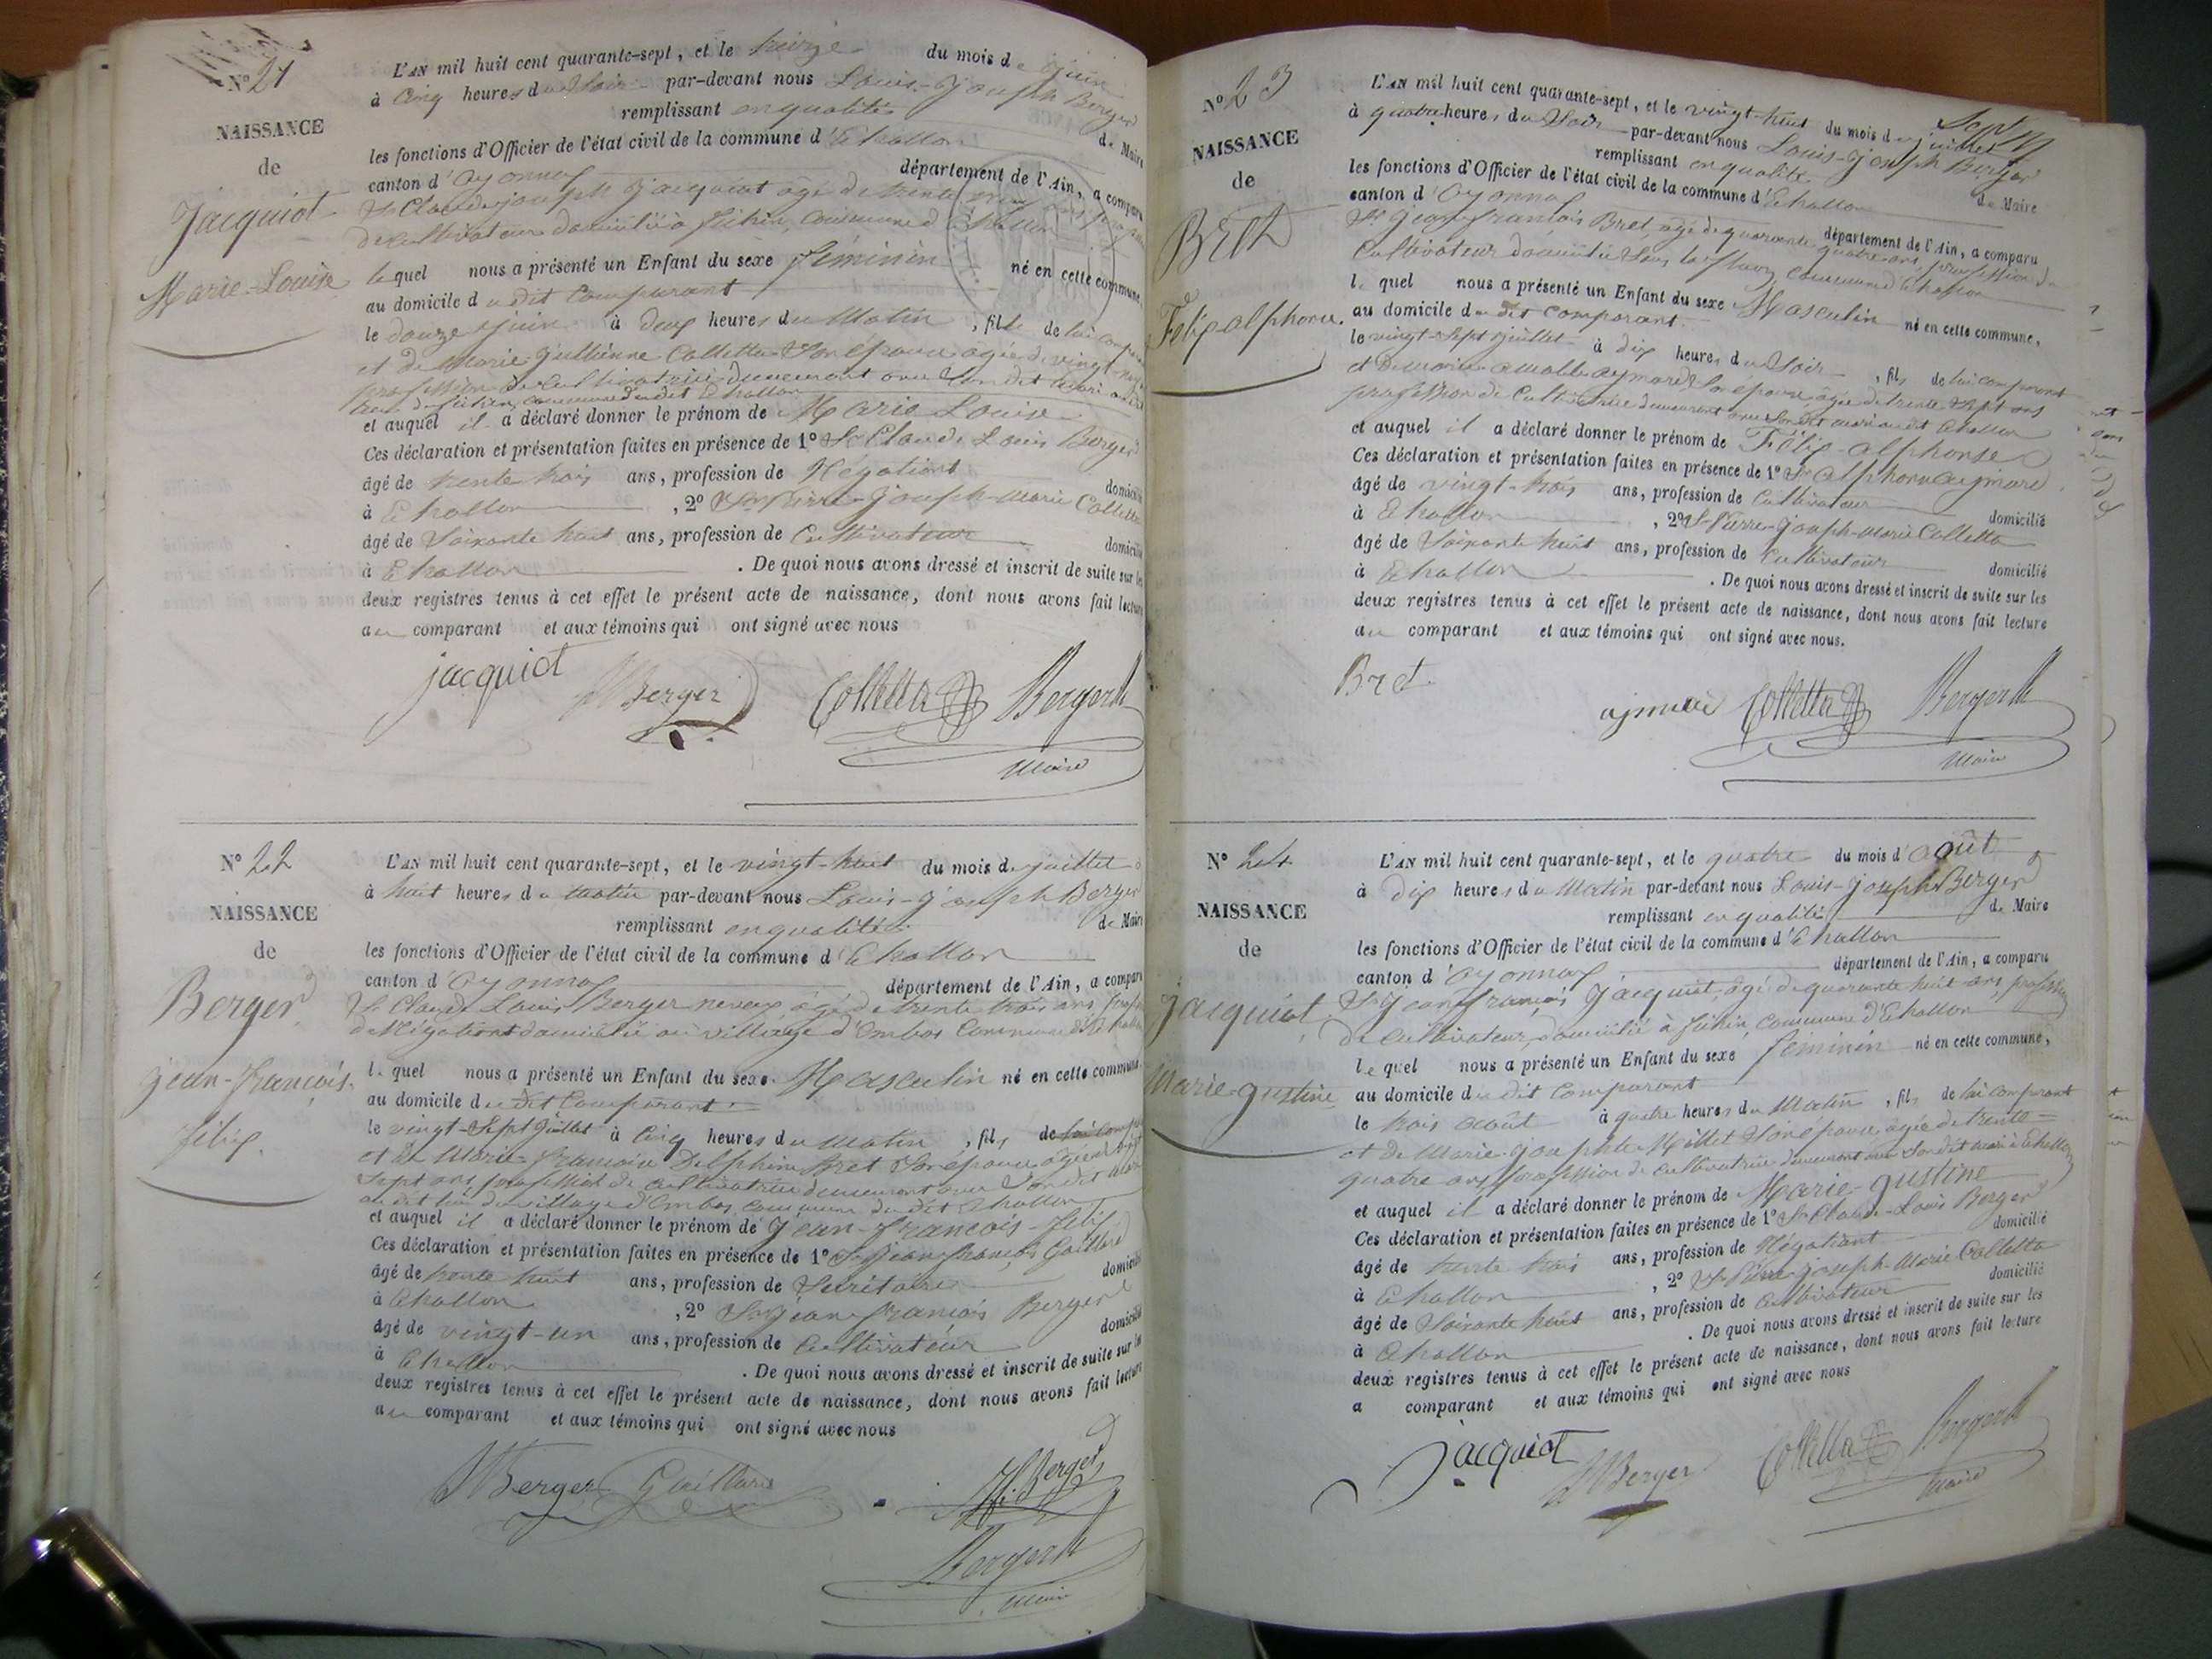 N° 21
NAISSANCE
de
Jacquiot
Marie-Louise
L'AN mil huit cent quarante-sept, et le treize du mois de juin
à cinq heures du soir par-devant nous Louis-Joseph Berger
remplissant en qualité de Maire
les fonctions d'Officier de l'état civil de la commune d'Echallon
canton d'Oyonnax département de l'Ain, a comparu
Sr Claude joseph Jacquiot âgé de trente
de cultivateur domicilié à commune d'Echallon
lequel nous a présenté un Enfant du sexe féminin né en cette commune,
au domicile du dit comparant
le douze juin à deux heures du matin, fille de lui comparant
et de Marie-Jullienne Colletta son épouse âgée de vingt
profession de cultivatrice demeurant avec son dit mari
commune du dit Echallon
et auquel il a déclaré donner le prénom de Marie Louise
Ces déclaration et présentation faites en présence de 1° Sr Claude Louis Berger
âgé de trente trois ans, profession de Négotiant domicilié
à Echallon, 2° Sr Pierre-Joseph-Marie Colletta
âgé de soixante huit ans, profession de Cultivateur domicilié
à Echallon. De quoi nous avons dressé et inscrit de suite sur les
deux registres tenus à cet effet le présent acte de naissance, dont nous avons fait lecture
au comparant et aux témoins qui ont signé avec nous
jacquiot Berger Colletta Berger
Maire
N° 22
NAISSANCE
de
Berger
jean-françois
félix.
L'AN mil huit cent quarante-sept, et le vingt-huit du mois de juillet
à huit heures du matin par-devant nous Louis-Joseph Berger
remplissant en qualité de Maire
les fonctions d'Officier de l'état civil de la commune d'Echallon
canton d'Oyonnax département de l'Ain, a comparu
Sr Claude Louis Berger neveux âgé de trente trois ans profession
de Négotiant domicilié au village d'Embos commune d'Echallon
lequel nous a présenté un Enfant du sexe Masculin né en cette commune,
au domicile du dit comparant
le vingt-sept juillet à cinq heures du matin, fils de lui comparant
et de Marie-françoise Delphine Bret son épouse âgée de vingt
sept ans profession de cultivatrice demeurant avec son dit mari
au dit lieu du village d'Embos, commune du dit Echallon
et auquel il a déclaré donner le prénom de Jean-françois-félix
Ces déclaration et présentation faites en présence de 1° Sr Jean françois Gaillard
âgé de trente huit ans, profession de Secrétaire domicilié
à Echallon, 2° Sr Jean françois Berger
âgé de vingt-un ans, profession de Cultivateur domicilié
à Echallon. De quoi nous avons dressé et inscrit de suite sur les
deux registres tenus à cet effet le présent acte de naissance, dont nous avons fait lecture
au comparant et aux témoins qui ont signé avec nous
Berger Gaillard Berger
Berger
Maire
N° 23
NAISSANCE
de
Bret
Félix alphonse.
L'AN mil huit cent quarante-sept, et le vingt-huit du mois de juillet
à quatre heures du soir par-devant nous Louis-Joseph Berger
remplissant en qualité de Maire
les fonctions d'Officier de l'état civil de la commune d'Echallon
canton d'Oyonnax département de l'Ain, a comparu
Sr Jean françois Bret, âgé de quarante quatre ans profession de
Cultivateur domicilié commune d'Echallon
lequel nous a présenté un Enfant du sexe Masculin né en cette commune,
au domicile du dit comparant.
le vingt-sept juillet à dix heures du soir, fils de lui comparant
et de marie amable aymard son épouse âgée de trente sept ans
profession de cultivatrice demeurant avec son dit mari au dit Echallon
et auquel il a déclaré donner le prénom de Félix-alphonse
Ces déclaration et présentation faites en présence de 1° Sr alphonse aymard
âgé de vingt-trois ans, profession de Cultivateur domicilié
à Echallon, 2° Sr Pierre-Joseph-Marie Colletta
âgé de soixante huit ans, profession de Cultivateur domicilié
à Echallon. De quoi nous avons dressé et inscrit de suite sur les
deux registres tenus à cet effet le présent acte de naissance, dont nous avons fait lecture
au comparant et aux témoins qui ont signé avec nous.
Bret. Colletta Berger
Maire
N° 24
NAISSANCE
de
jacquiot
Marie-gustine
L'AN mil huit cent quarante-sept, et le quatre du mois d'août
à dix heures du matin par-devant nous Louis-Joseph Berger
remplissant en qualité de Maire
les fonctions d'Officier de l'état civil de la commune d'Echallon
canton d'Oyonnax département de l'Ain, a comparu
Sr Jean françois Jacquiot, âgé de quarante huit ans, profession
de cultivateur domicilié à commune d'Echallon
lequel nous a présenté un Enfant du sexe féminin né en cette commune,
au domicile du dit comparant
le trois août à quatre heures du matin, fils de lui comparant
et de Marie-josephte Millet son épouse âgée de trente=
quatre ans profession de cultivatrice demeurant avec son dit mari à Echallon
et auquel il a déclaré donner le prénom de Marie-gustine
Ces déclaration et présentation faites en présence de 1° Sr Claude-Louis Berger
âgé de trente trois ans, profession de Négotiant domicilié
à Echallon, 2° Sr Pierre Joseph-Marie Colletta
âgé de soixante huit ans, profession de cultivateur domicilié
à Echallon. De quoi nous avons dressé et inscrit de suite sur les
deux registres tenus à cet effet le présent acte de naissance, dont nous avons fait lecture
a comparant et aux témoins qui ont signé avec nous
Jacquiot Berger Colletta Berger
Maire